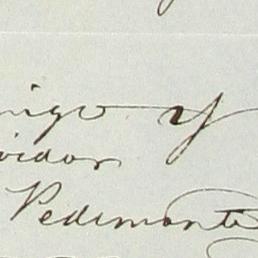 migo y
vidor
Pedemonte